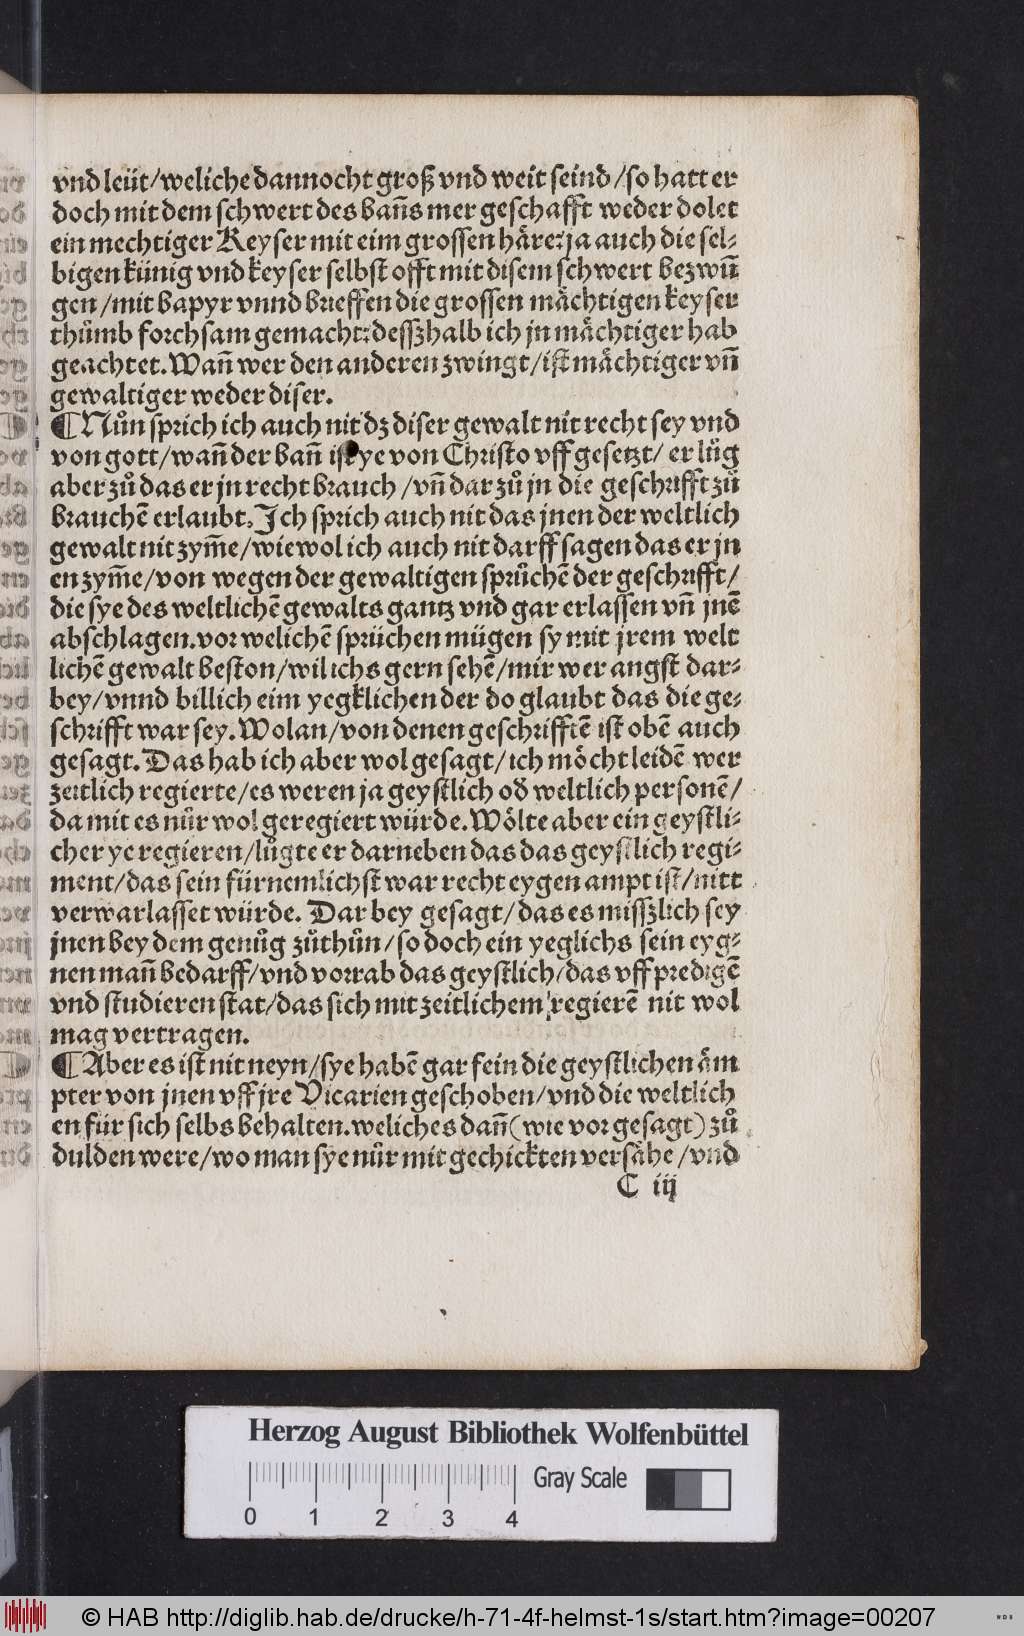 vnd leüt/weliche dannocht groß vnd weit seind/so hatt er
doch mit dem schwert des bañs mer geschafft weder dolet
ein mechtiger Keyser mit eim grossen häre:ja auch die sel⸗
bigen künig vnd keyser selbst offt mit disem schwert bezwū
gen/mit bapyr vnnd brieffen die grossen mächtigen keyser
thůmb forchsam gemacht:desszhalb ich jn mächtiger hab
geachtet.Wañ wer den anderen zwingt/ist mächtiger vñ
gewaltiger weder diser.
¶Nůn sprich ich auch nit dz diser gewalt nit recht sey vnd
von gott/wañ der bañ ist ye von Christo vff gesetzt/ er lůg
aber zů das er jn recht brauch/vñ dar zů jn die geschrifft zů
brauchē erlaubt.Ich sprich auch nit das jnen der weltlich
gewalt nit zym̄e/wiewol ich auch nit darff sagen das er jn
en zym̄e/von wegen der gewaltigen sprüchē der geschrifft/
die sye des weltlichē gewalts gantz vnd gar erlassen vñ jnē
abschlagen.vor welichē sprüchen mügen sy mit jrem welt
lichē gewalt beston/wil ichs gern sehē/mir wer angst dar⸗
bey/vnnd billich eim yegklichen der do glaubt das die ge⸗
schrifft war sey.Wolan/von denen geschrifftē ist obē auch
gesagt.Das hab ich aber wol gesagt/ich möcht leidē wer
zeitlich regierte/es weren ja geystlich oď weltlich personē/
da mit es nůr wol geregiert würde.Wölte aber ein geystli⸗
cher ye regieren/lůgte er darneben das das geystlich regi⸗
ment/das sein fürnemlichst war recht eygen ampt ist/nitt
verwarlasset würde. Dar bey gesagt/das es misszlich sey
jnen bey dem genůg zůthůn/so doch ein yeglichs sein eyg⸗
nen mañ bedarff/vnd vorrab das geystlich/das vff predigē
vnd studieren stat/das sich mit zeitlichem regierē nit wol
mag vertragen.
¶Aber es ist nit neyn/sye habē gar fein die geystlichen äm
pter von jnen vff jre Vicarien geschoben/vnd die weltlich
en für sich selbs behalten.weliches dañ(wie vor gesagt)zů
dulden were/wo man sye nůr mit gechickten versähe/vnd
C iij
Herzog August Bibliothek Wolfenbüttel
Gray Scale
0 1 2 3 4
© HAB http://diglib.hab.de/drucke/h-71-4f-helmst-1s/start.htm?image=00207